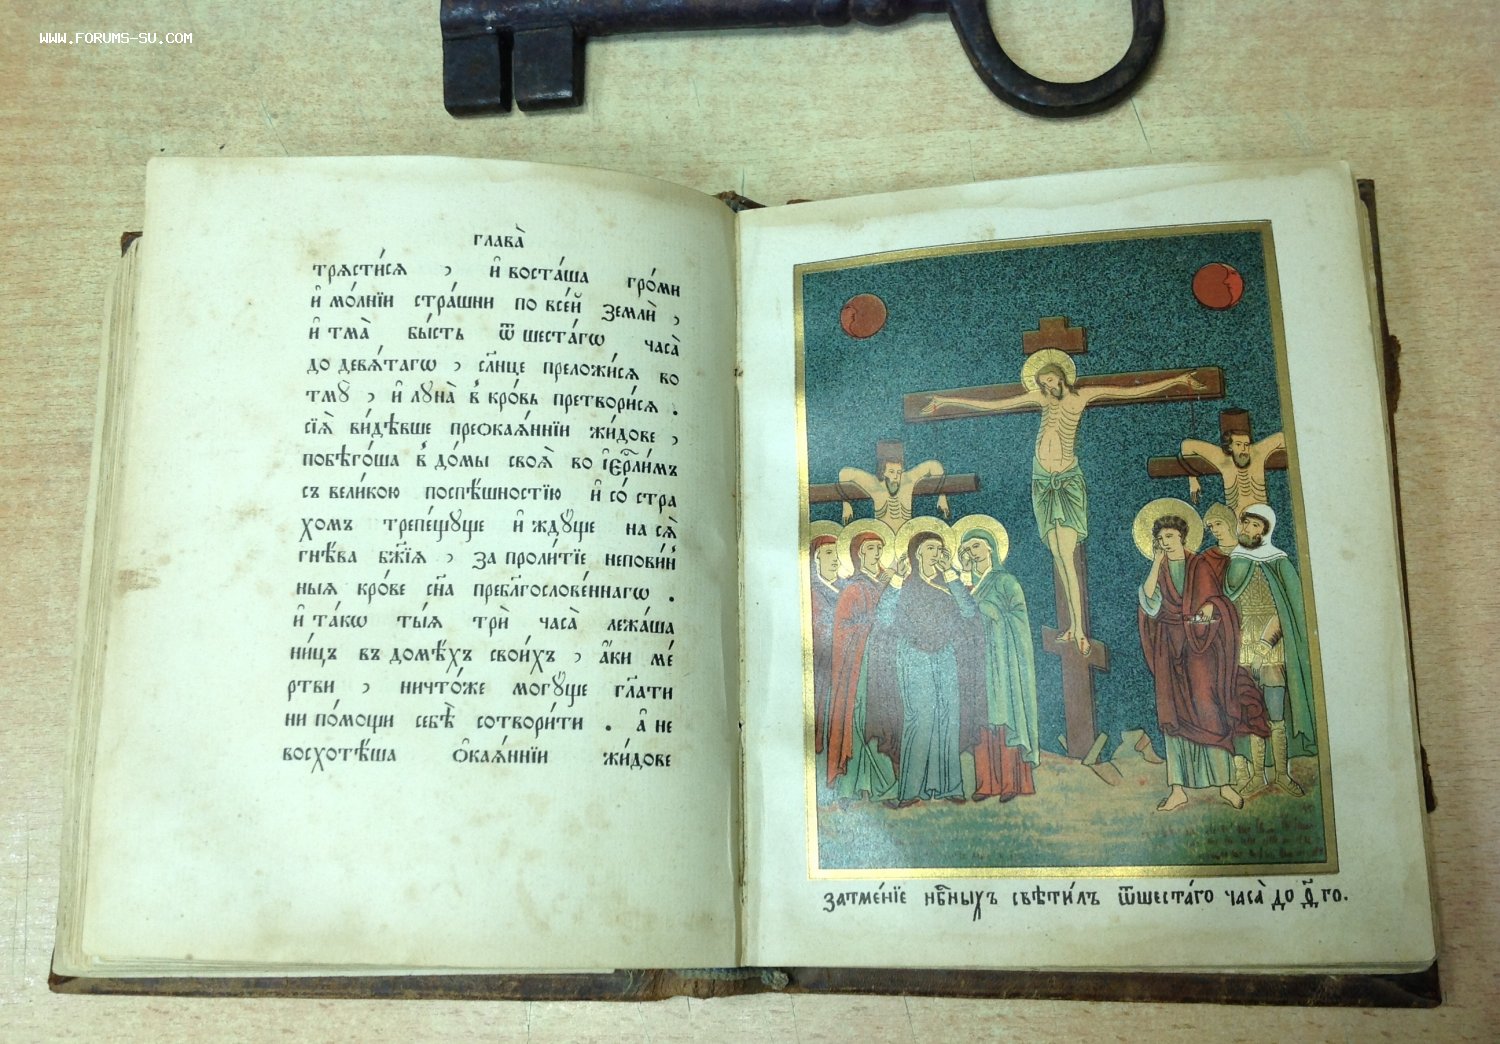 WWW.FORUMS-SU.COM
глава̀
трѧсти́сѧ , и҆ воста́ша гро́ми
и҆ мо́лнїи стра́шни по все́й землѝ ,
и҆ тма̀ бы́сть ѿ шеста́гѡ часа̀
до девѧ́тагѡ , сл҃нце преложи́сѧ во
тмꙋ̀ , и҆ лꙋна̀ в̾ кро́вь претвори́сѧ .
сїѧ̀ ви́дѣвше преѻкаѧ́ннїи жи́дове ,
побѣго́ша в̾ до́мы своѧ̀ во і҆ерⷭ҇ли́мъ
съ вели́кою поспѣ́шностїю и҆ со́ стра
хомъ трепе́щꙋще и҆ ждꙋ́ще на сѧ̀
гнѣ́ва бж҃їѧ , за проли́тїе непови́н
ныѧ кро́ве сн҃а пребл҃гослове́ннагѡ .
и҆ та́кѡ ты́ѧ трѝ часа̀ лежа́ша
ни́цъ въ домѣ́хъ свои́хъ , а҆́ки ме́
ртви , ничто́же могꙋ́ще гл҃ати
ни по́мощи себѣ̀ сотвори́ти . а҆ не
восхотѣ́ша ѻ҆каѧ́ннїи жи́дове
затме́нїе нб҃ныхъ свѣти́лъ ѿшеста́го часа̀ до ѳ҃ го.